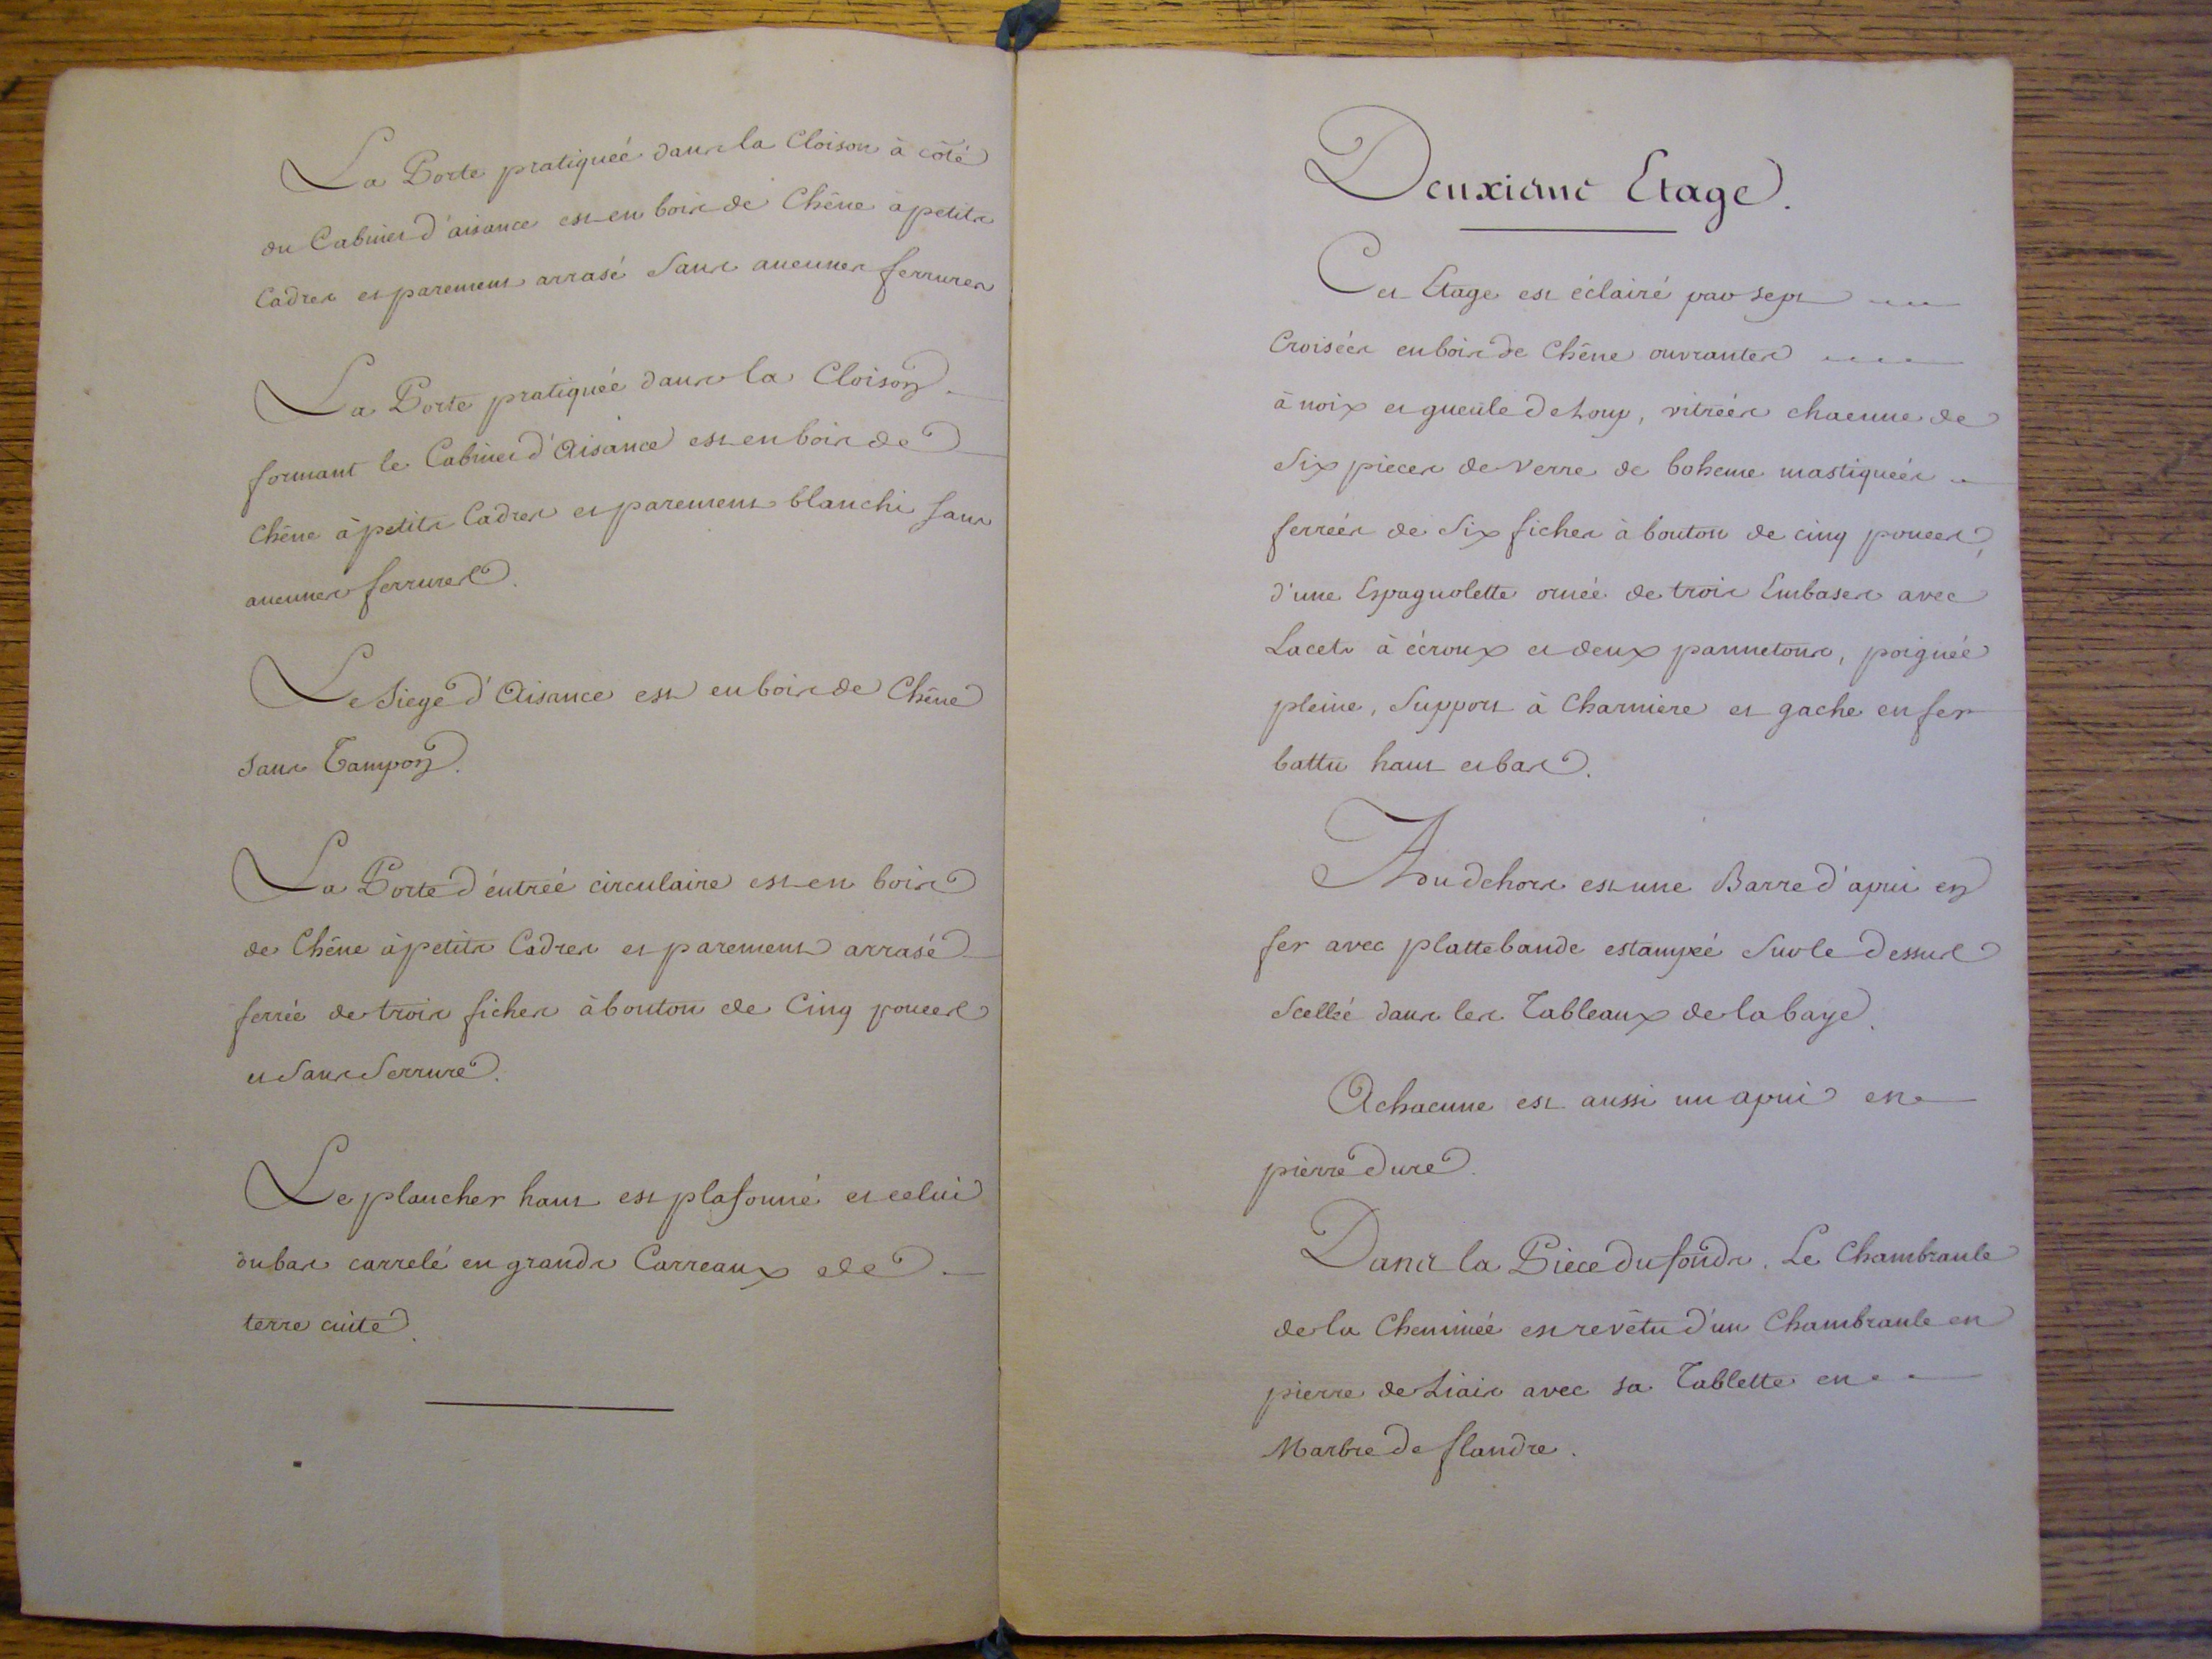 La Porte pratiquée dans la Cloison à côté
du Cabinet d'aisance est en bois de Chêne à petits
Cadres et parement arrasé Sans aucunes ferrures
La Porte pratiquée dans la Cloison
formant le Cabinet d'Aisance est en bois de
Chêne à petits Cadres et parement blanchi sans
aucunes ferrures.
Le Siege d'Aisance est en bois de Chêne
sans Tampon.
La Porte d'éntréé circulaire est en bois
de Chêne à petits Cadres et parement arrasé
ferrée de trois fiches à bouton de Cinq pouces
et Sans Serrure.
Le plancher haut est plafonné et celui
du bas carrelé en grands Carreaux de
terre cuite.
Deuxieme Etage.
Cet Etage est éclairé par sept
Croisées en bois de Chêne ouvrantes
à noix et gueule de Loup, vitréés chacune de
Six pieces de verre de boheme mastiquéés
ferréés de Six fiches à bouton de cinq pouces,
d'une Espagnolette ornéé de trois Embases avec
Lacets à écroux et deux pannetons, poignéé
pleine, Support à Charniere et gache en fer
battu haut et bas.
Au dehors est une Barre d'apui en
fer avec plattebande estampéé Sur le dessus
Scelléé dans les Tableaux de la baye.
A chacune est aussi un apui en
pierre dure.
Dans la Piece du fonds. Le Chambranle
de la Cheminéé est revêtu d'un Chambranle en
pierre de Liais avec sa Tablette en
Marbre de flandre.